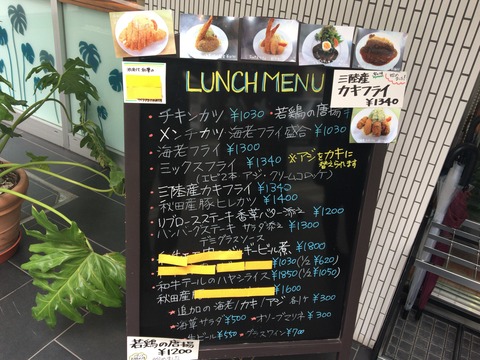 LUNCH MENU
三陸産
カキフライ
¥1340
・チキンカツ ¥1030 ・若鶏の唐揚
・メンチカツ 海老フライ盛合 ¥1030
・海老フライ ¥1300
・ミックスフライ ¥1340 ※アジをカキに
替えられます
(エビ2本 アジ・クリームコロッケ)
・三陸産カキフライ ¥1340
・秋田産豚ヒレカツ ¥1400
・リブロースステーキ 香草バター添え ¥1200
・ハンバーグステーキ サラダ添え ¥1300
デミグラスソース
ビール煮 ¥1800
¥1030 (½ ¥620)
・和牛テールのハヤシライス ¥1850 (½ ¥1050)
・秋田産 ¥1600
・追加の海老/カキ/アジ 各1ケ ¥300
・海草サラダ ¥500 ・オリーブマリネ ¥300
・生ビール ¥550 ・グラスワイン ¥700
若鶏の唐揚
¥1200